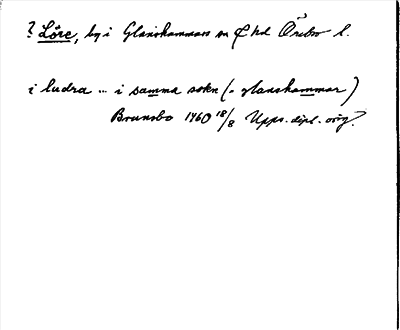 ? Löre, by i Glanshammars sn o hd Örebro l.
i ludra ... i samma sokn (= glanshammar)
Brunsbo 1460 18/8 Upps. dipl. orig.